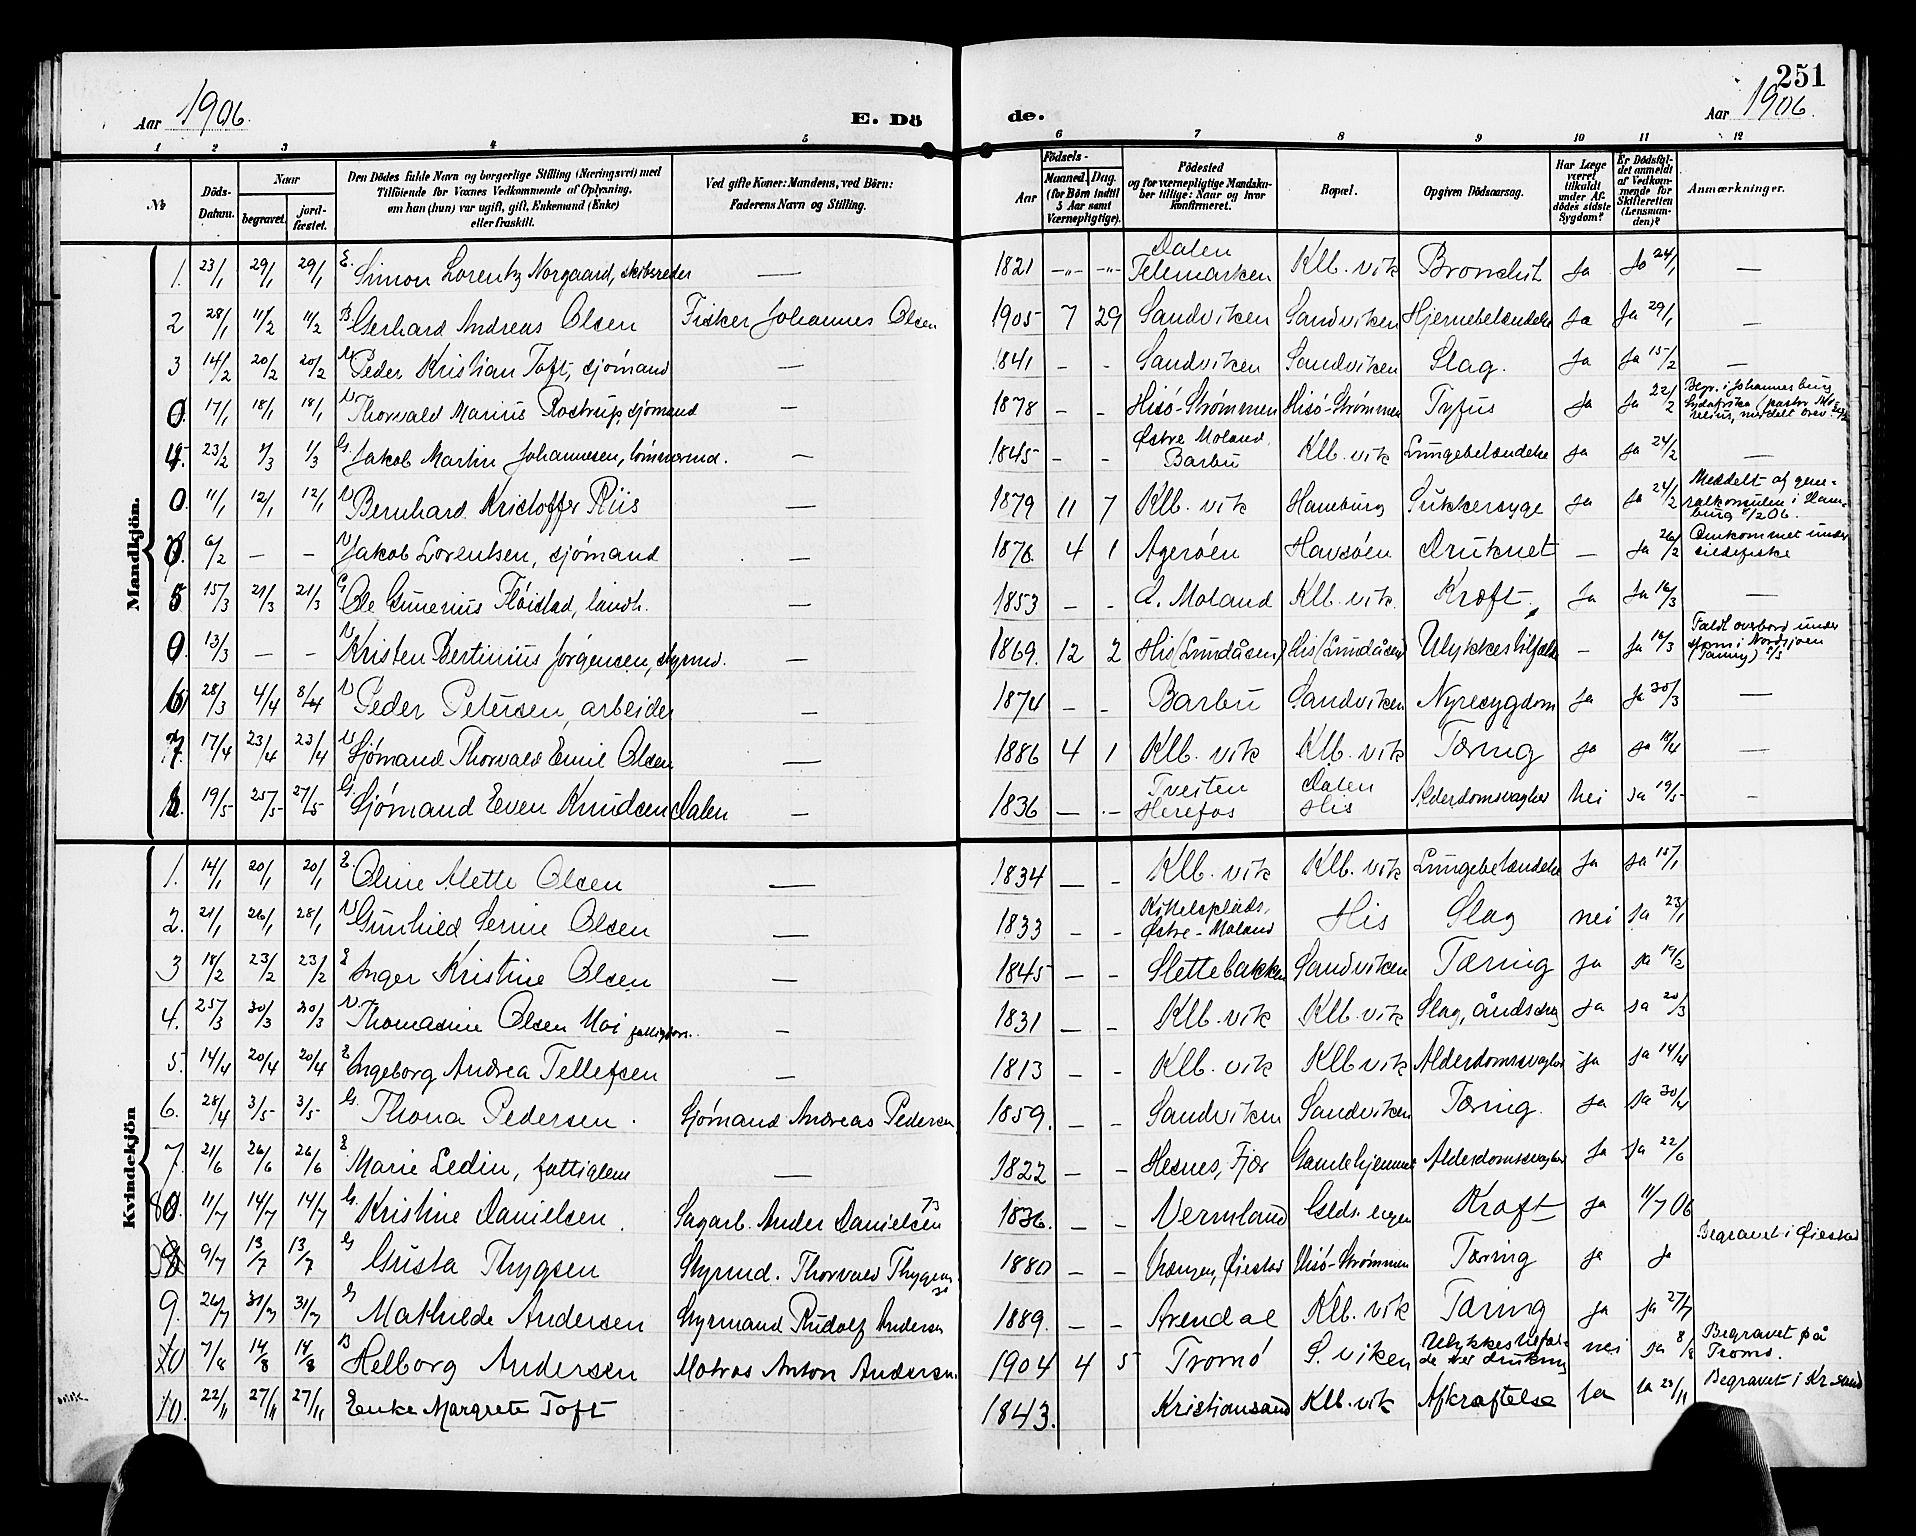 251
Aar 1906.
E. Dö
de.
Aar 1906.
1 2 3 4 5 6 7 8 9 10 11 12
№
Döds-Datum.
Naar
begravet.
jord-fæstet.
Den Dödes fulde Navn og borgerlige Stilling (Næringsvei) med
Tilföiende for Voxnes Vedkommende af Oplysning,
om han (hun) var ugift, gift, Enkemand (Enke)
eller fraskilt.
Ved gifte Koner: Mandens, ved Börn:
Faderens Navn og Stilling.
Födsels-
Aar
Maaned. Dag.
(for Börn indtil
5 Aar samt
Værnepligtige).
Födested
og for værnepligtige Mandska-
ber tillige: Naar og hvor
konfirmeret.
Bopæl.
Opgiven Dödsaarsag.
Har Læge
været
tilkaldt
under Af-
dödes sidste
Sygdom?
Er Dödsfal-
det anmeldt
af Vedkom-
mende for
Skifteretten
(Lensman-
den)?
Anmærkninger.
Mandkjön.
1. 23/1 29/1 29/1 E. Simon Lorentz Norgaard, skibsreder — 1821 -"- -"- Dalen Telemarken Klb. vik Bronchit Ja Ja 24/1 —
2 28/1 11/2 11/2 B. Gerhard Andreas Olsen Fisker Johannes Olsen 1905 7 29 Sandviken Sandviken Hjernebetændelse Ja Ja 29/1 —
3 14/2 20/2 20/2 Peder Kristian Toft, sjømand — 1841 - - Sandviken Sandviken Slag. Ja Ja 15/2 —
0. 17/1 18/1 18/1 U Thorvald Marius Rostrup, sjømand — 1878 - - Hisö-Strømmen Hisö-Strømmen Tyfus Ja Ja 22/2 Begr. i Johannesburg Sydafrika (pastor meddelt brev
4. 23/2 1/3 1/3 G. Jakob Martin Johannesen, tømmermd. — 1845 - - Østre Moland, Barbu Klb. vik Lungebetændelse Ja Ja 24/2 —
0 11/1 12/1 12/1 U Bernhard Kristoffer Riis — 1879 11 7 Klb. vik Hamburg Sukkersyge Ja Ja 24/2 Meddelt af gene-ralkonsulen i Ham-burg /2 06.
0. 6/2 — - U Jakob Lorentsen, sjømand — 1876. 4 1 Agerøen Havsøen Druknet — Ja 26/2 Omkommet under sildefiske
5 15/3 21/3 21/3 G Ole Gunerius Fløistad, landh. — 1853 - - Ø. Moland Klb. vik. Kræft. Ja Ja 16/3 —
0. 13/3 — - U Kristen Bertinius Jørgensen, styrmd. — 1869. 12 2 His (Lundåsen) His (Lundåsen) Ulykkestilfælde - Ja 16/3 Faldt overbord under storm i Nordsjøen
6 28/3 4/4 8/4 U Peder Petersen, arbeider — 1874 - - Barbu Sandviken Nyresygdom Ja Ja 30/3 —
7. 17/4 23/4 23/4 U Sjømand Thorvald Emil Olsen — 1886 4 1 Klb. vik Klb. vik Tæring Ja Ja 18/4 —
8. 19/5 25/5 27/5 G. Sjømand Even Knudsen Dalen — 1836 — - Tveiten Herefos Dalen His Alderdomsvaghed Nei Ja 19/5 -
Kvindekjön
1. 14/1 20/1 20/1 E. Oline Alette Olsen — 1834 — - Klb. vik Klb. vik Lungebetændelse Ja Ja 15/1
2. 21/1 26/1 28/1 U Gunhild Serine Olsen — 1833 - - Kittelsplads, Østre-Moland His Slag nei Ja 23/1
3 18/2 23/2 23/2 E Inger Kristine Olsen — 1845 - - Slettebakken Sandviken Tæring Ja Ja 19/2
4. 25/3 30/3 30/3 U. Thomasine Olsen Moi — 1831 - - Klb. vik Klb. vik Slag, åndssvag Ja Ja 28/3
5. 14/4 20/4 20/4 E Ingeborg Andrea Tellefsen — 1813 - - Klb. vik Klb vik Alderdomsvaghed Ja Ja 14/4
6. 28/4 3/5 3/5 G. Thona Pedersen. Sjømand Andreas Pedersen 1859. - - Sandviken Sandviken Tæring. Ja Ja 30/4
7. 21/6 26/6 26/6 E Marie Ledin, fattiglem — 1822 - - Hesnes, Fjær Gamlehjemmet Alderdomsvaghed Ja Ja 22/6
8 11/7 14/7 14/7 G. Kristine Danielsen. Sagarb. Ander Danielsen 73 1836. - - Vermland Klb. vik Kræft Ja 11/7 06
0 9/7 13/7 13/7 G Gusta Thygsen Styrmd. Thorvald Thygesen 1880 - - Vrængen, Øiestad Hisö-Strømmen Tæring Ja Ja Begravet i Øiestad
9. 26/7 31/7 31/7 G Mathilde Andersen Styrmand Rudolf Andersen 1889. - - Arendal Klb. vik Tæring Ja Ja 27/7
0 7/8 14/8 14/8 B Helborg Andersen Matros Anton Andersen. 1904 4 5 Tromö S. viken Ulykkestilfæl-de ved drukning nei Ja 8/8 Begravet på Tromö.
10. 22/11 27/11 27/11 Enke Margrete Toft 1843. Kristiansand Klb. vik Afkræftelse Ja Ja 23/11 Begravet i Kr.sand